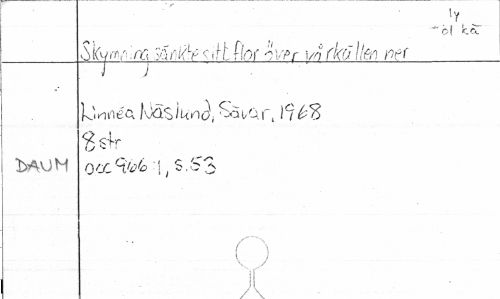 ly
öl kä
Skymning sänkte sitt flor över vårkällen ner
Linnéa Näslund, Sävar, 1968
8 str
DAUM acc 966:1, s. 53